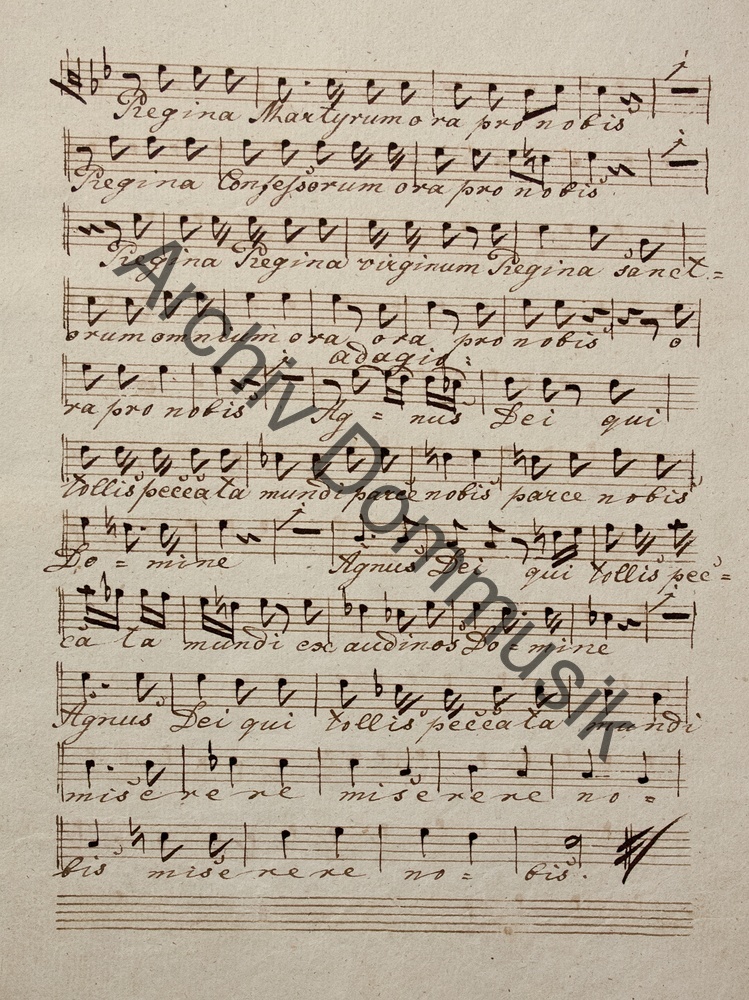 Regina Martyrum ora pro nobis
Regina Confessorum ora pro nobis
Regina Regina virginum Regina sanct=
orum omnium ora, ora pro nobis o
adagio:
ra pro nobis Ag = nus Dei qui
tollis peccata mundi parce nobis parce nobis
Do = mine Agnus Dei qui tollis pec=
ca ta mundi exaudi nos Do = mine
Agnus Dei qui tollis peccata mundi
miserere miserere no =
bis miserere no = bis.
Archiv Dommusik